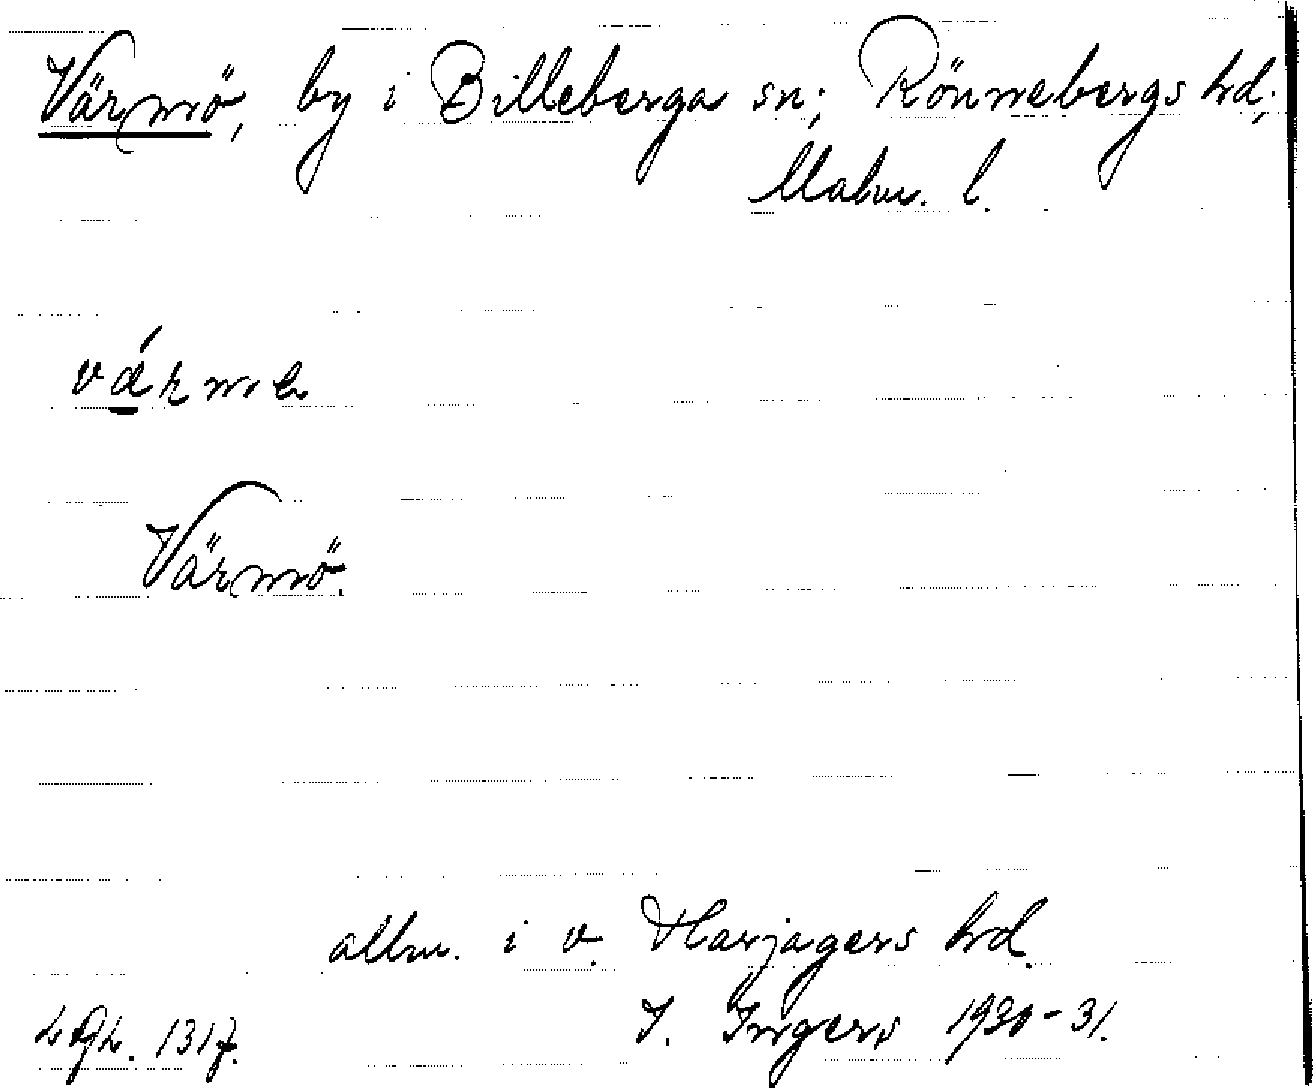 Värmö, by i Billeberga sn; Rönnebergs hd;
Malm. l.
Värmö.
allm. i v. Harjagers hd.
I. Ingers 1930-31.